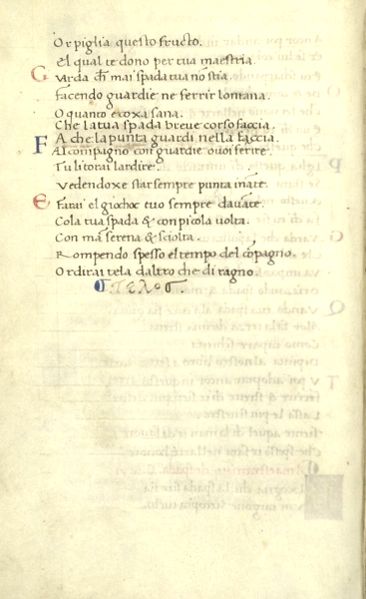 Or piglia questo fructo.
El qual te dono per tua maestria.
Guarda ch̄ mai spada tua nō stia.
Facendo guardie ne ferrir lontana.
O quanto e coxa sana.
Che la tua spada breve corso faccia.
Fa che la punta guardi nella faccia.
Al compagno con guardie o uoi ferire.
Tu li torai lardire.
Vedendoxe star sempre punta ināte.
E farai el giocho tuo sempre dauāte.
Cola tua spada & con picola volta.
Con mā serena & sciolta.
Rompendo spesso el tempo del cōpagno.
Ordirai tela daltro che di ragno.
Τελοσ.